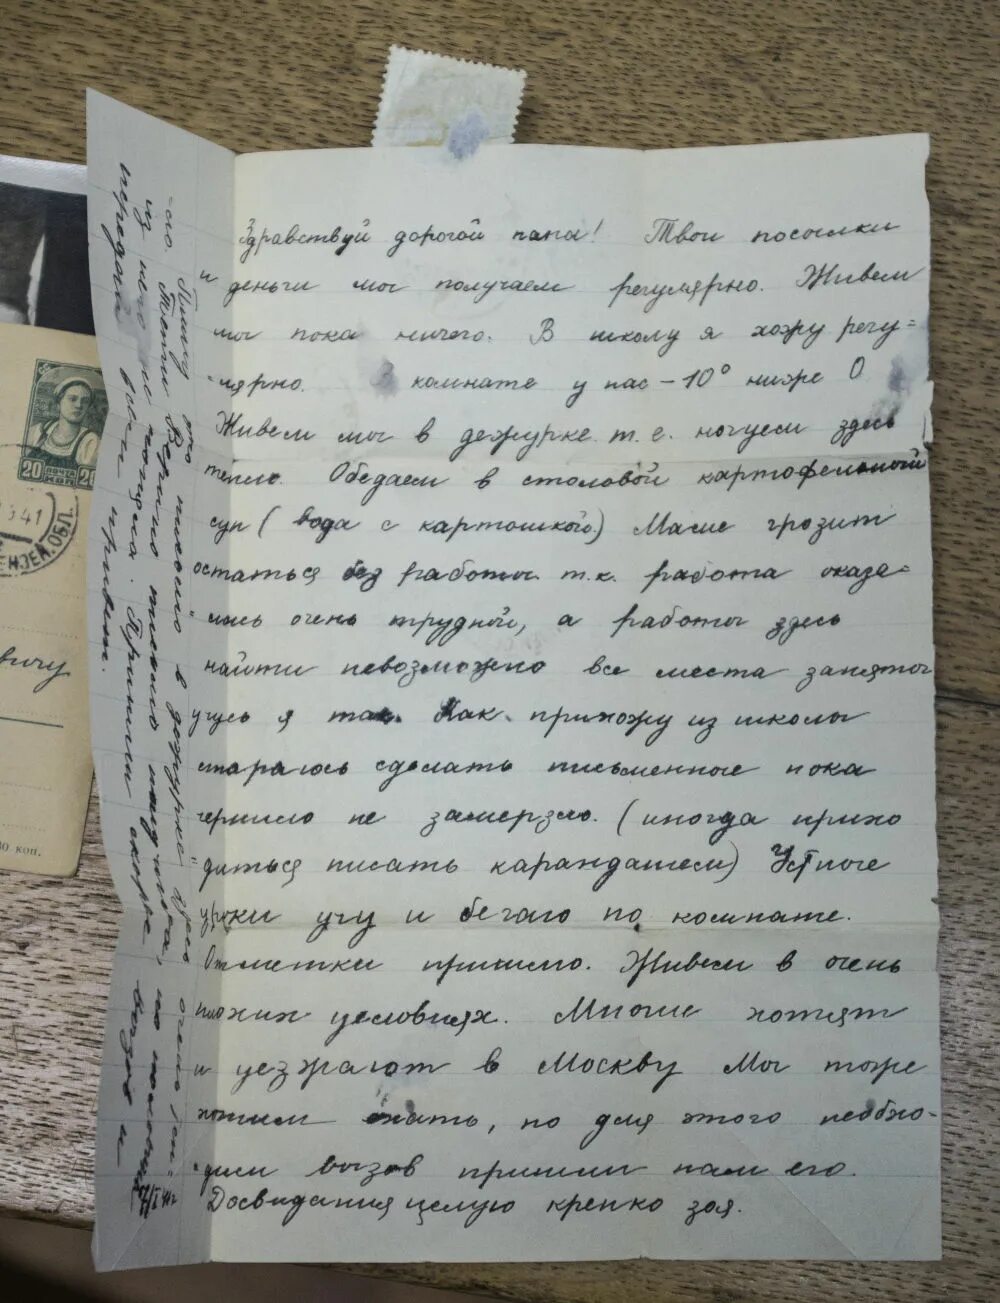 Здравствуй дорогой папа! Твои посылки
и деньги мы получаем регулярно. Живем
мы пока ничего. В школу я хожу регу=
"лярно. В комнате у нас – 10° ниже 0
Живем мы в дежурке т.е. ночуем здесь
тепло. Обедаем в столовой картофельный
суп ( вода с картошкой.) Маме грозит
остаться без работы т.к. работа оказа=
лась очень трудной, а работы здесь
найти невозможно все места заняты
учусь я так. Как прихожу из школы
стараюсь сделать письменные пока
чернило не замерзло. (иногда прихо
"диться писать карандашем) Устные
уроки учу и бегаю по комнате.
Отметки пришлю. Живем в очень
плохих условиях. Многие хотят
и уезжают в Москву Мы тоже
хотим ехать, но для этого необхо-
"дим вызов пришли нам его.
Досвидания целую крепко зоя.
Пишу это письмо в дежурке здесь очень теп=
=ло. Тетик Вералло письмо
из него не
передай всем привет. Пришли скорее вызов и
20 ПОЧТА 20
КОП
3 41
ОБЛ.
вичу
0 коп.